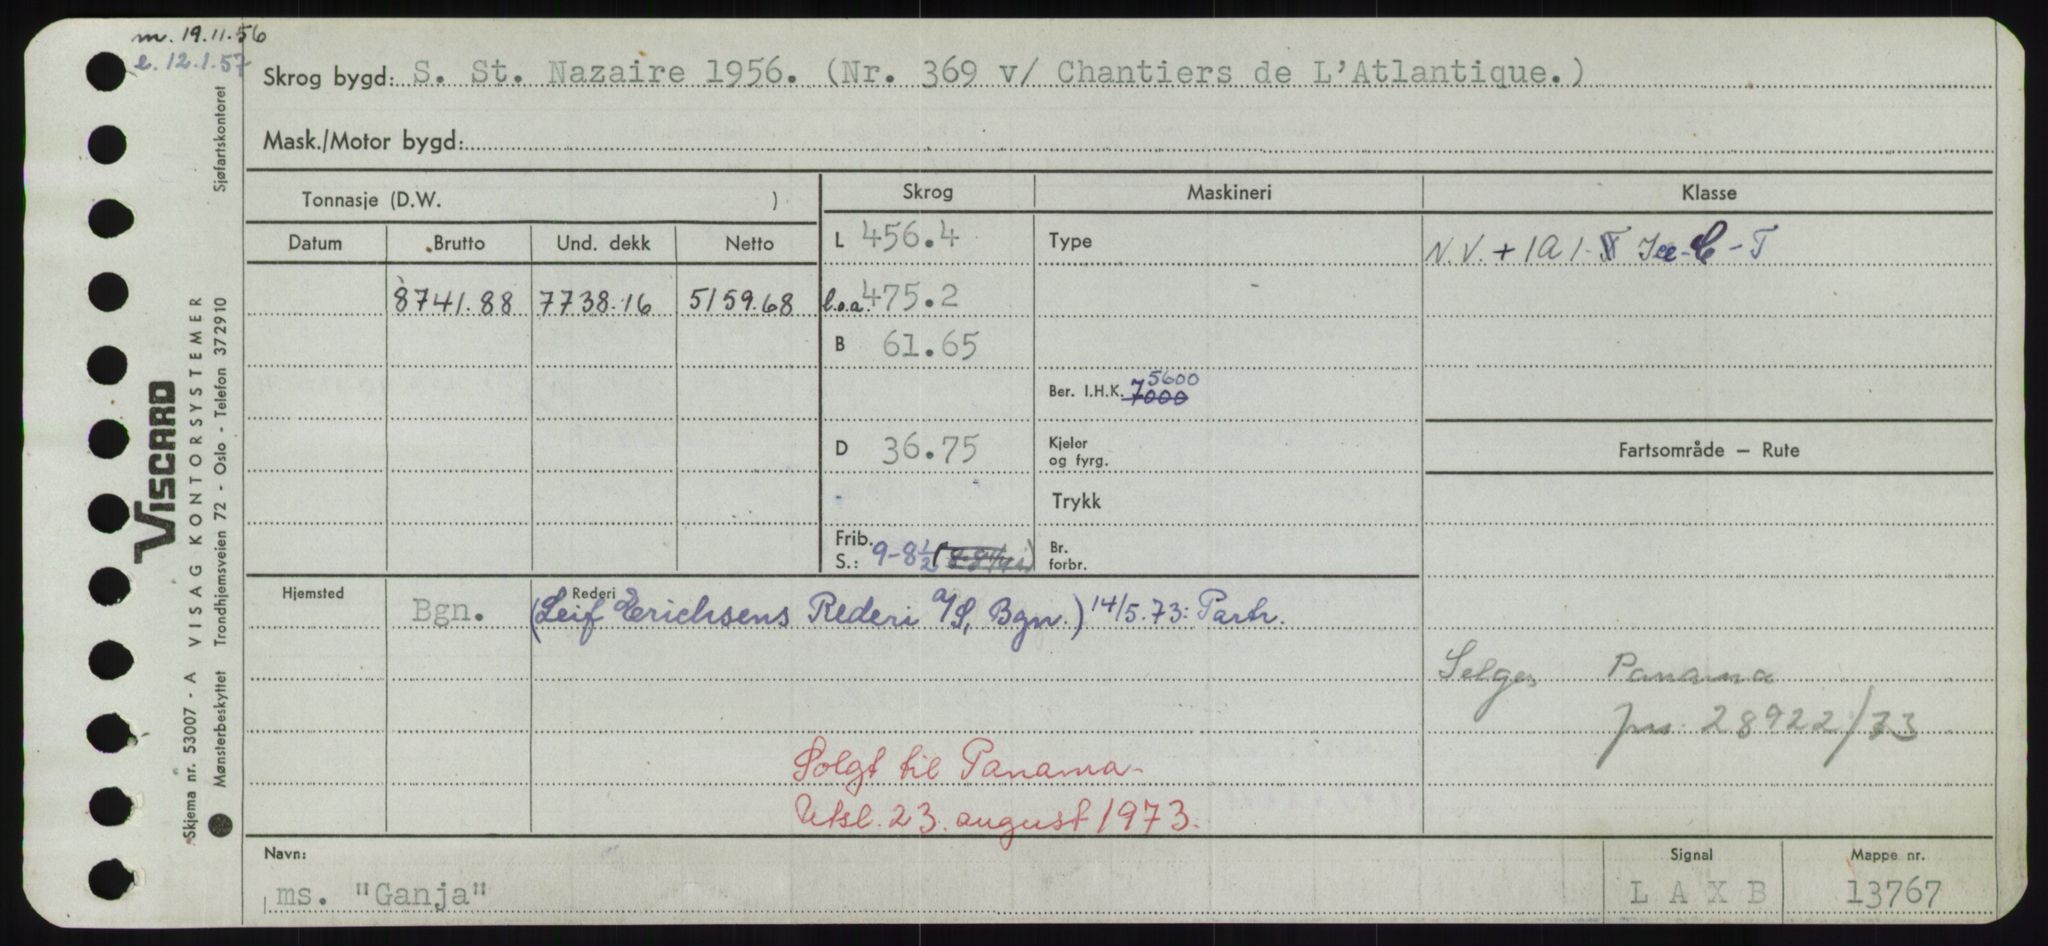 m. 19.11.56
e. 12.1.57
Skrog bygd: S. St. Nazaire 1956. (Nr. 369 v/ Chantiers de L'Atlantique.)
Mask./Motor bygd:
Tonnasje (D.W. )
Skrog
Maskineri
Klasse
Datum Brutto Und. dekk Netto
L 456.4
Type
N.V. + 1A1- Ice-C - T
8741.88 7738.16 5159.68
l.o.a. 475.2
B 61.65
Ber. I.H.K. 7000 5600
D 36.75
Kjeler
og fyrg.
Fartsområde – Rute
Trykk
Frib.
S.: 9-8½
Br.
forbr.
Hjemsted Bgn.
Rederi (Leif Erichsens Rederi a/S, Bgn.) 14/5.73: Partr.
Selges Panama
jnr. 28922/73
Solgt til Panama
Utsl. 23. august 1973.
Navn:
ms. "Ganja"
Signal
L A X B
Mappe nr.
13767
Sjøfartskontoret
VISCARD
VISAG KONTORSYSTEMER
Trondhjemsveien 72 - Oslo - Telefon 372910
Skjema nr. 53007 - A
Mønsterbeskyttet